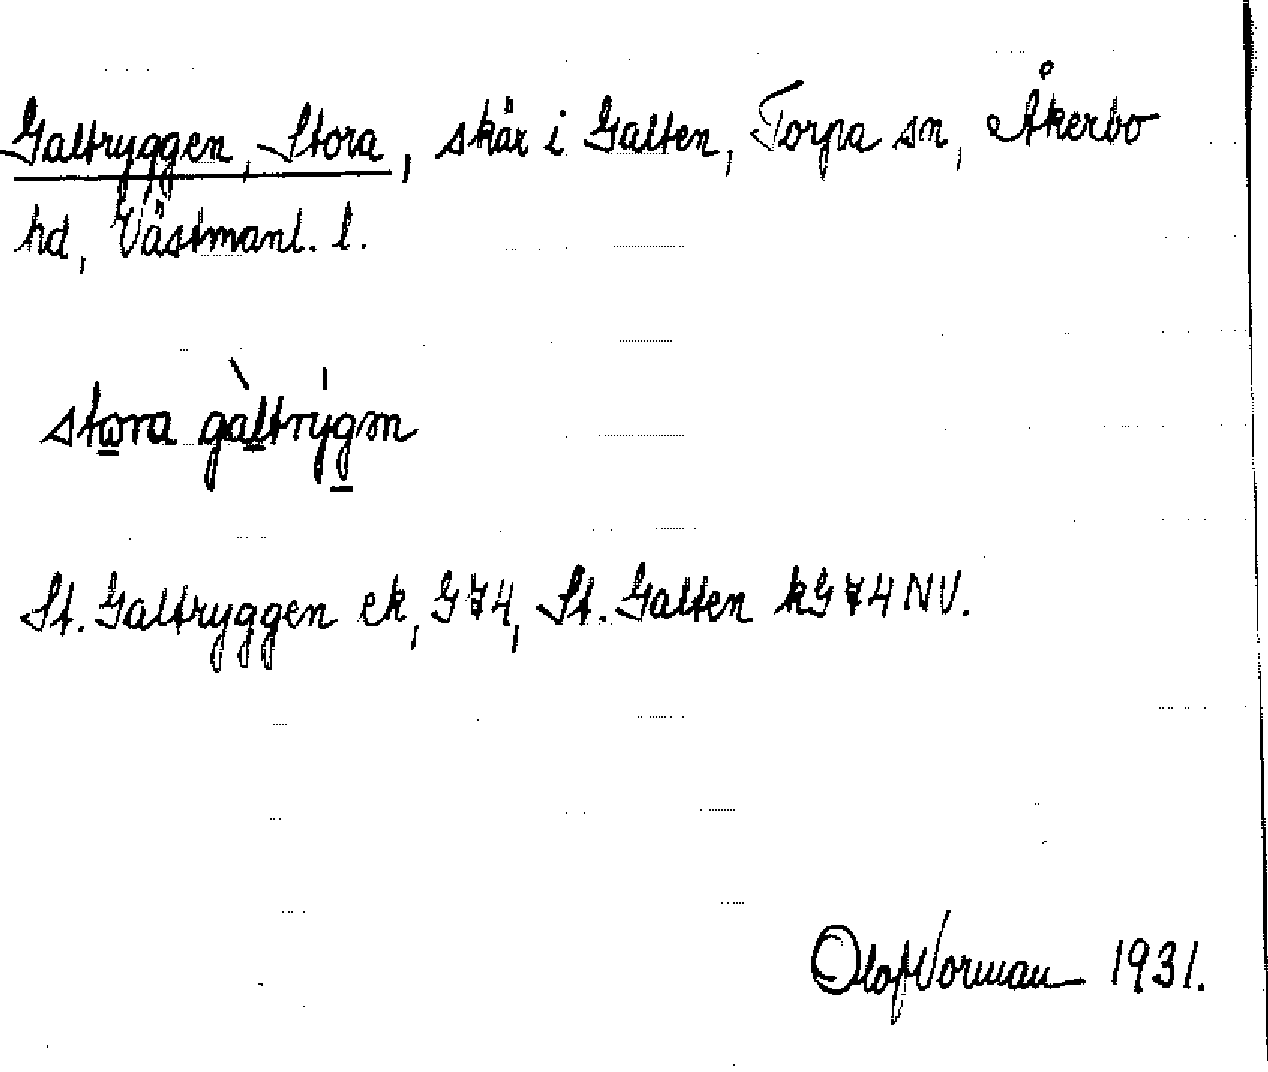 Galtryggen, Stora, skär i Galten, Torpa sn, Åkerbo
hd, Västmanl. l.
stora gàltrýgən
St. Galtryggen ek, G74, St. Galten kG74NV.
Olof Norman 1931.